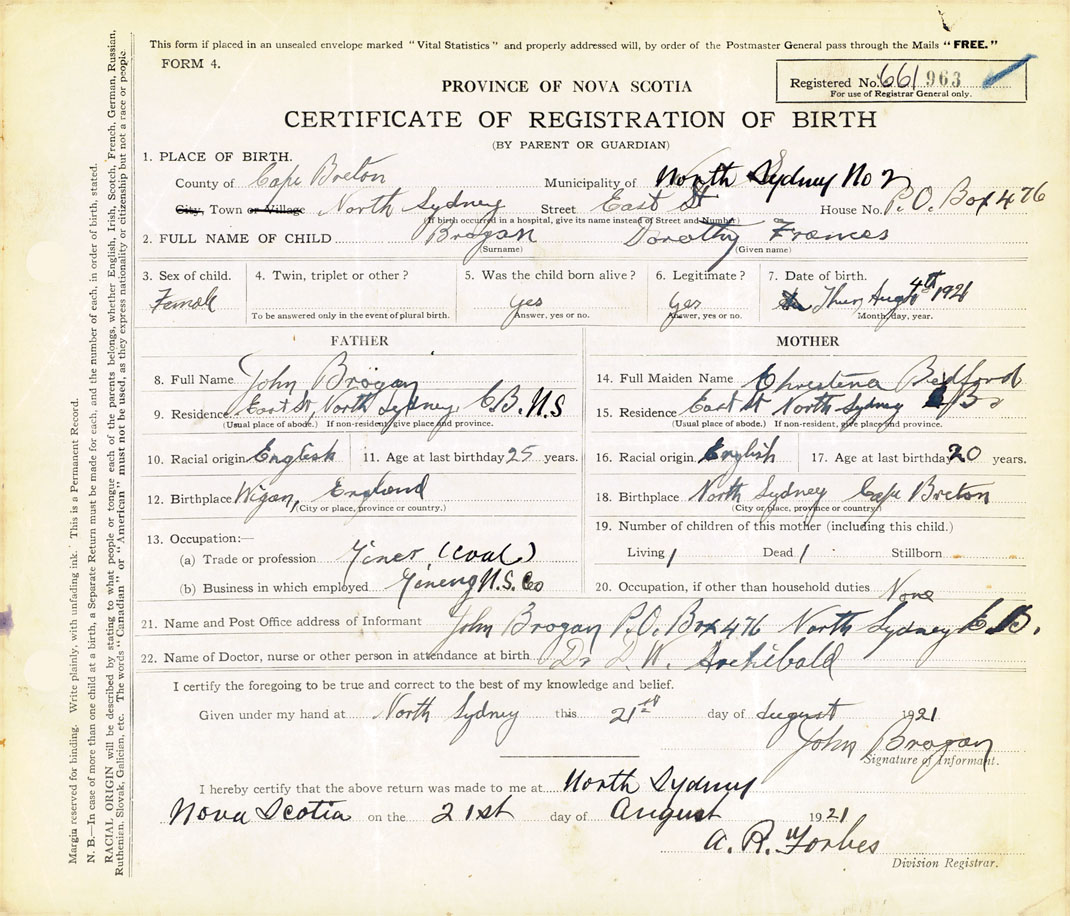 This form if placed in an unsealed envelope marked "Vital Statistics" and properly addressed will, by order of the Postmaster General pass through the Mails "FREE."
FORM 4.
Registered No. 661 963
For use of Registrar General only.
PROVINCE OF NOVA SCOTIA
CERTIFICATE OF REGISTRATION OF BIRTH
(BY PARENT OR GUARDIAN)
1. PLACE OF BIRTH.
County of Cape Breton Municipality of North Sydney No 2
City, Town or Village North Sydney Street East St House No. P.O. Box 476
(If birth occurred in a hospital, give its name instead of Street and Number)
2. FULL NAME OF CHILD Brogan Dorothy Frances
(Surname) (Given name)
3. Sex of child. 4. Twin, triplet or other? 5. Was the child born alive? 6. Legitimate? 7. Date of birth.
Female Yes Yes Thur, Aug 4th 1921
To be answered only in the event of plural birth. Answer, yes or no. Answer, yes or no. Month, day, year.
FATHER MOTHER
8. Full Name John Brogan 14. Full Maiden Name Christena Bedford
9. Residence East St, North Sydney, C.B. N.S 15. Residence East St North Sydney C B
(Usual place of abode.) If non-resident, give place and province. (Usual place of abode.) If non-resident, give place and province.
10. Racial origin English 11. Age at last birthday 25 years. 16. Racial origin English 17. Age at last birthday 20 years.
12. Birthplace Wigan, England 18. Birthplace North Sydney Cape Breton
(City or place, province or country.) (City or place, province or country)
13. Occupation:— 19. Number of children of this mother (including this child.)
(a) Trade or profession Miner (Coal) Living 1 Dead 1 Stillborn
(b) Business in which employed Mining N.S. Co 20. Occupation, if other than household duties None
21. Name and Post Office address of Informant John Brogan P.O. Box 476 North Sydney C.B.
22. Name of Doctor, nurse or other person in attendance at birth Dr L. W. Archibald
I certify the foregoing to be true and correct to the best of my knowledge and belief.
Given under my hand at North Sydney this 21st day of August 1921
John Brogan
Signature of Informant.
I hereby certify that the above return was made to me at North Sydney
Nova Scotia on the 21st day of August 1921
A. R. Forbes
Division Registrar.
Margin reserved for binding. Write plainly, with unfading ink. This is a Permanent Record.
N. B.—In case of more than one child at a birth, a Separate Return must be made for each, and the number of each, in order of birth, stated.
RACIAL ORIGIN will be described by stating to what people or tongue each of the parents belongs, whether English, Irish, Scotch, French, German, Russian,
Ruthenian, Slovak, Galician, etc. The words "Canadian" or "American" must not be used, as they express nationality or citizenship but not a race or people